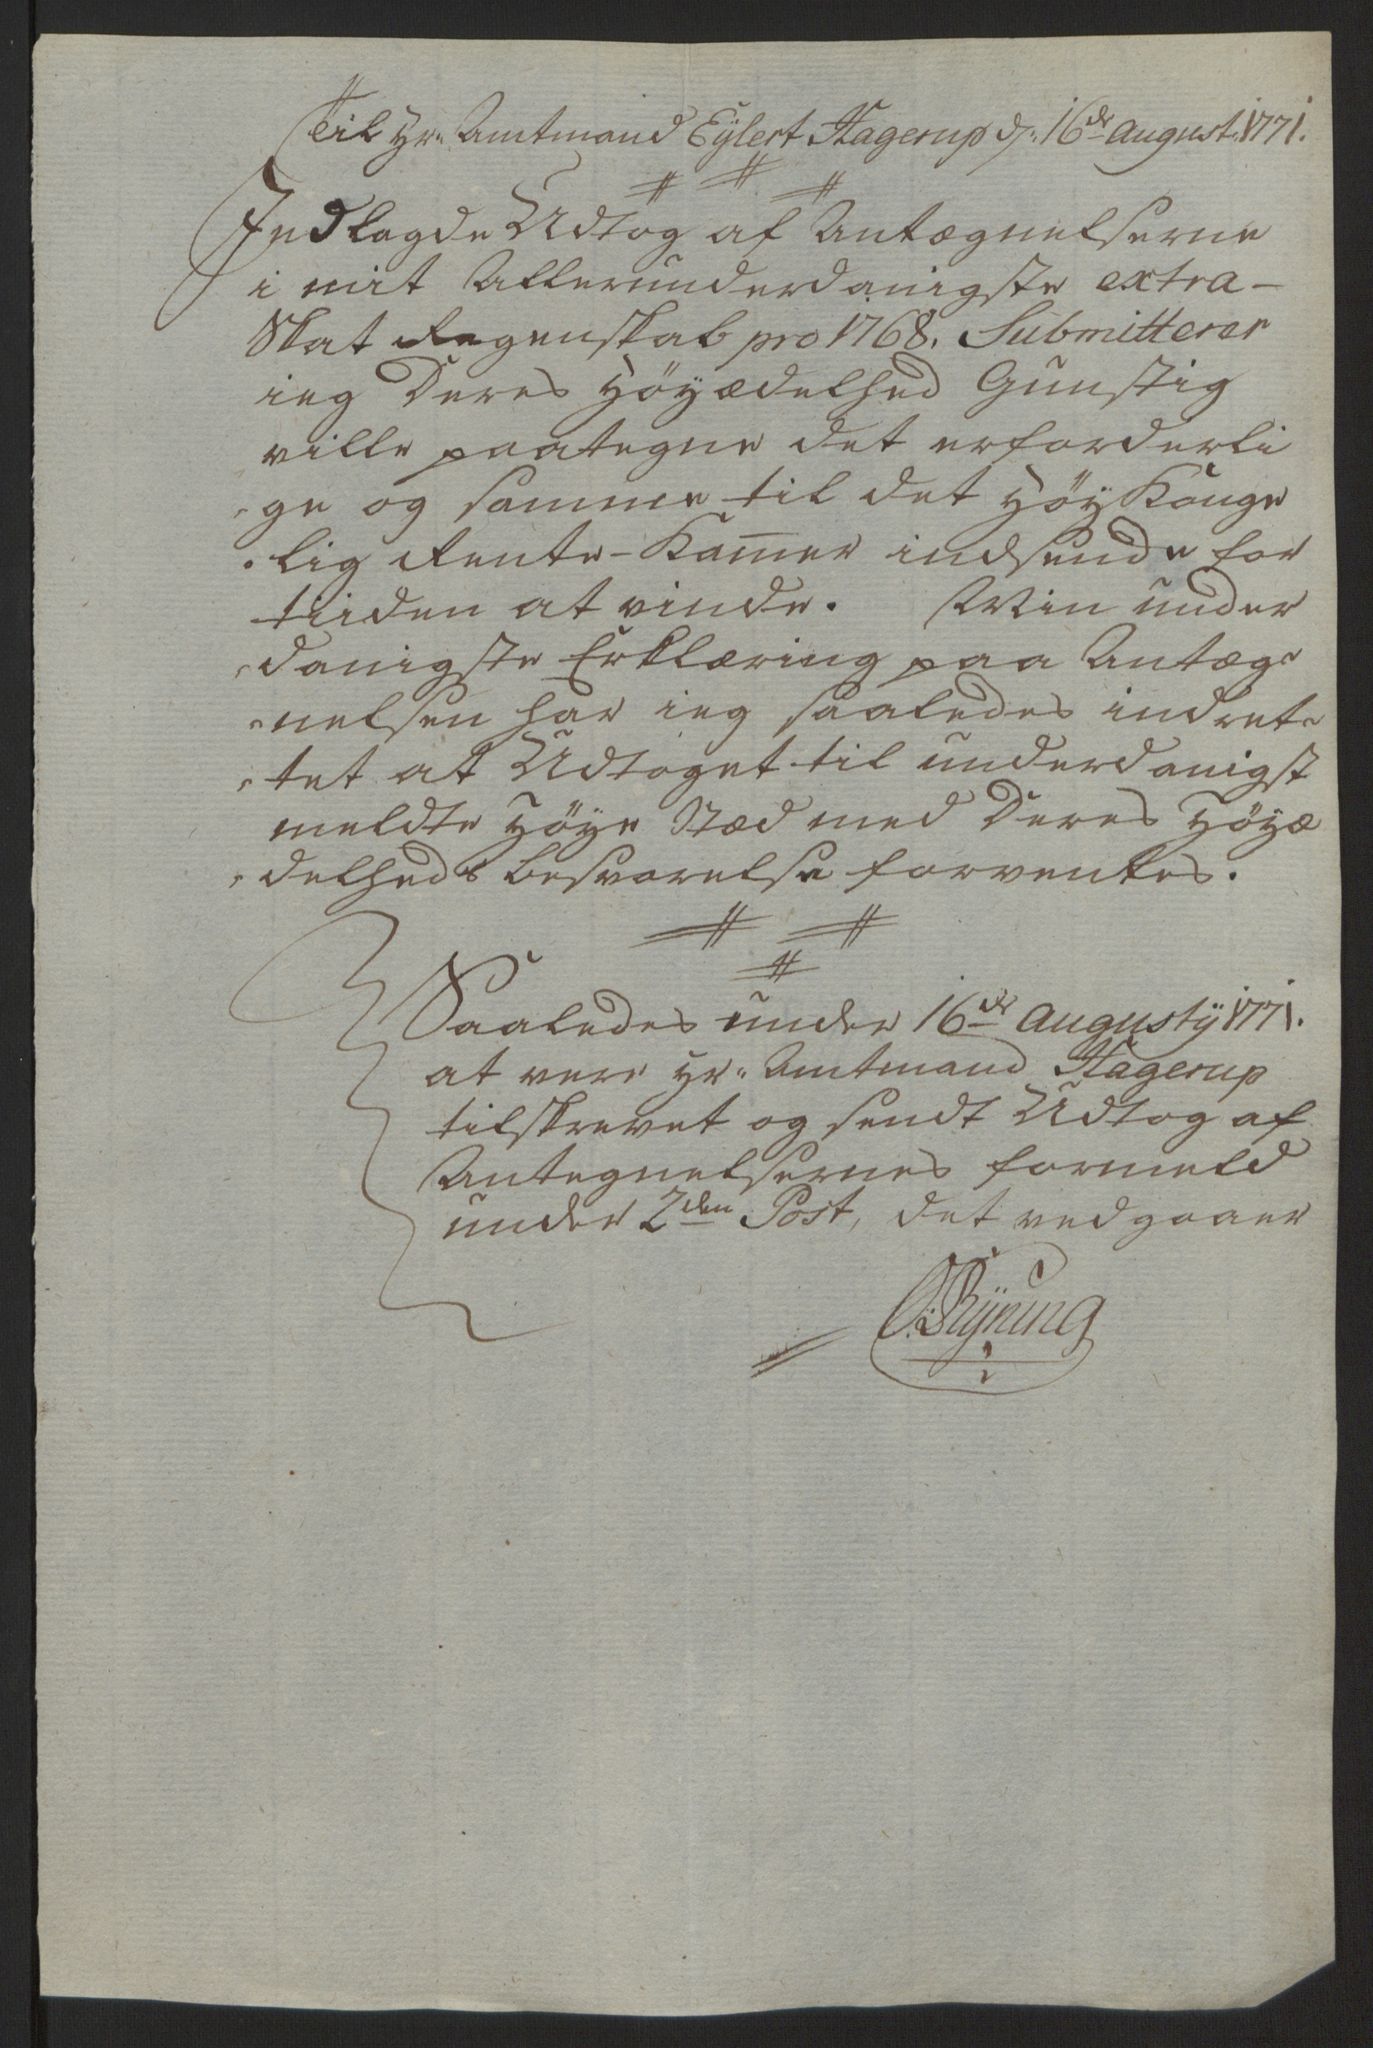 Til Hr. Amtmand Eÿlert Hagerup d: 16de August: 1771.
Indlagde Udtog af Antægnelserne
i mit Allerunderdanigste extra-
Skat Regenskab pro 1768. Submitterer
ieg Deres Höÿædelhed Gunstig
ville paategne det erforderli
ge og samme til det HöÿKonge
lig Rente-Kam̅er indsende for
tiiden at vinde. Min under
danigste Erklæring paa Antæg-
nelsen har ieg saaledes indret-
tet at Udtoget til underdanigst
meldte Höÿe Stæd med Deres Höÿæ
delheds besvarelse forventes.
Saaledes under 16de Augustÿ 1771.
at vere Hr. Amtmand Hagerup
tilskrevet og sendt Udtog af
Antegnelsernes formeld
under 2den Post, det vedgaaer
O: Rÿning